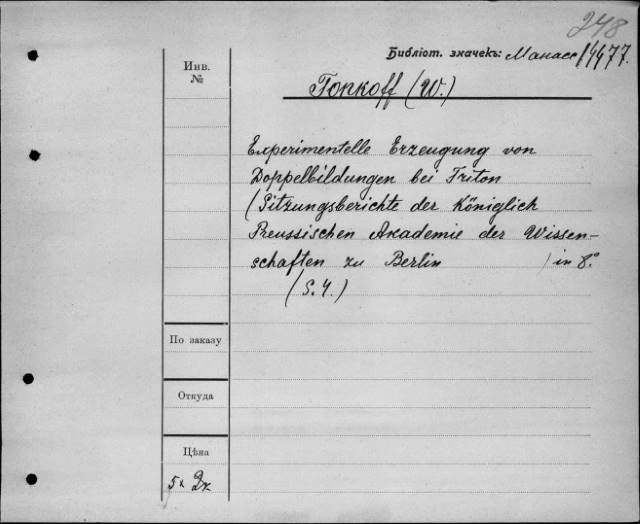 248
Библіот. значекъ: Манасс/4477.
Инв.
№
Tonkoff (W.)
Experimentelle Erzeugung von
Doppelbildungen bei Triton
(Sitzungsberichte der Königlich
Preussischen Akademie der Wissen-
schaften zu Berlin ) in 8.°
(S. 4.)
По заказу
Откуда
Цѣна